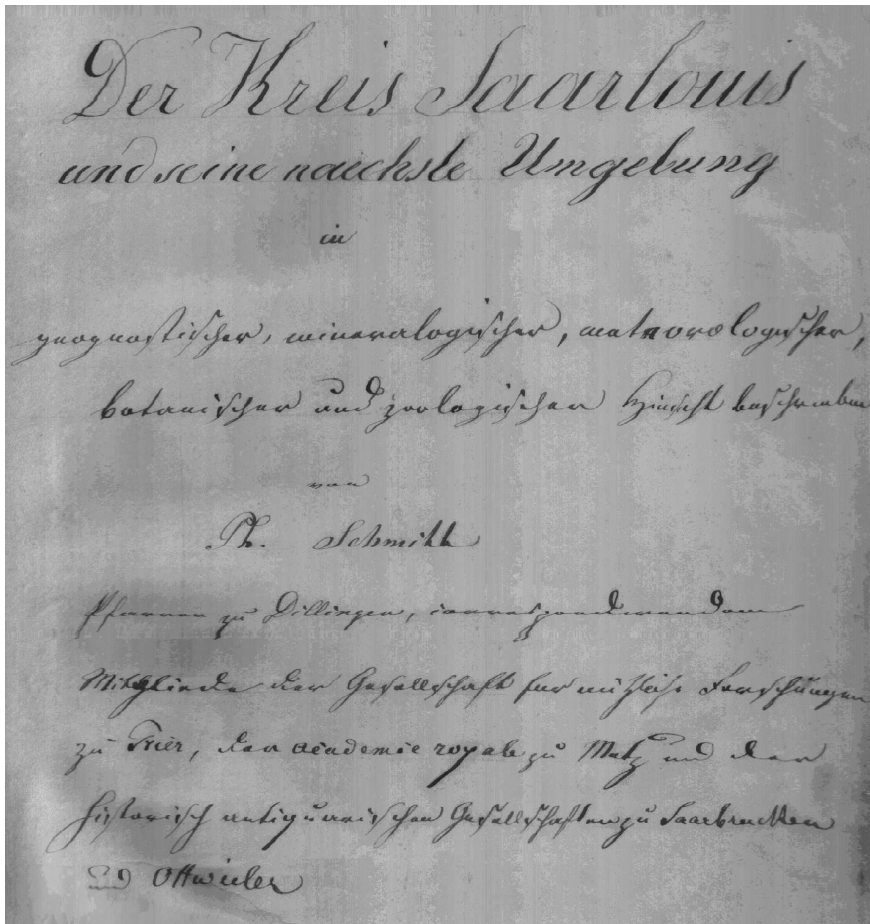 Der Kreis Saarlouis
und seine naechste Umgebung
in
geognostischer, mineralogischer, meteorologischer,
botanischer und zoologischer Hinsicht beschrieben
von
Ph. Schmitt
Pfarrer zu Dillingen, correspondirendem
Mitgliede der Gesellschaft für nützliche Forschungen
zu Trier, der academie royale zu Metz und der
historisch antiquarischen Gesellschaften zu Saarbrücken
und Ottweiler